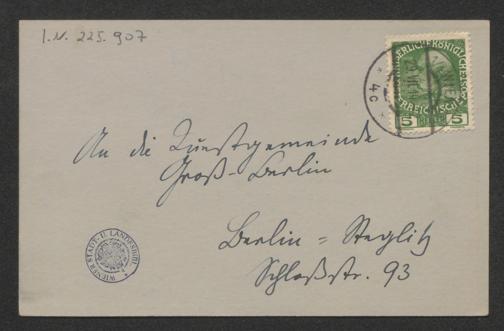 I.N. 225.907
KAISERLICHE KÖNIGLICHE
ÖSTERREICHISCHE
5 5
4c
An die Kunstgemeinde
Groß-Berlin
Berlin = Steglitz
Schloßstr. 93
WIENER STADT- U. LANDESBIBL.